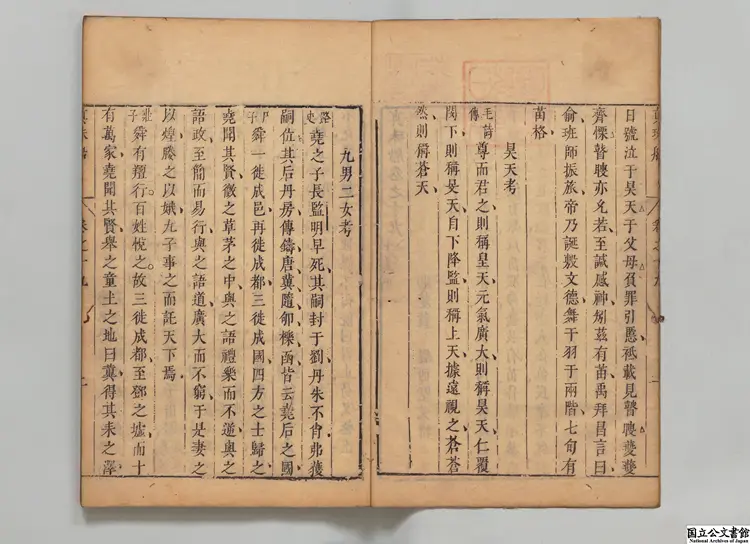 日號泣于昊天于父母負罪引慝祗載見瞽瞍夔夔
齊慄瞽瞍亦允若至諴感神矧茲有苗禹拜昌言曰
俞班師振旅帝乃誕敷文德舞干羽于兩階七旬有
苗格
昊天考
毛詩傳
尊而君之則稱皇天元氣廣大則稱昊天仁覆
閔下則稱旻天自下降監則稱上天據遠視之蒼蒼
然則稱蒼天
九男二女考
路史
堯之子長監明早死其嗣封于劉丹朱不肖弗獲
嗣位其后丹房傳鑄唐冀隨卹櫟函皆云堯后之國
尸子
舜一徙成邑再徙成都三徙成國四方之士歸之
堯聞其賢徵之草茅之中與之語禮樂而不逆與之
語政至簡而易行與之語道廣大而不窮于是妻之
以煌媵之以娥九子事之而託天下焉
莊子
舜有羶行百姓悅之故三徙成都至鄧之墟而十
有萬家堯聞其賢舉之童土之地曰冀得其來之澤
卷之十九
国立公文書館
National Archives of Japan